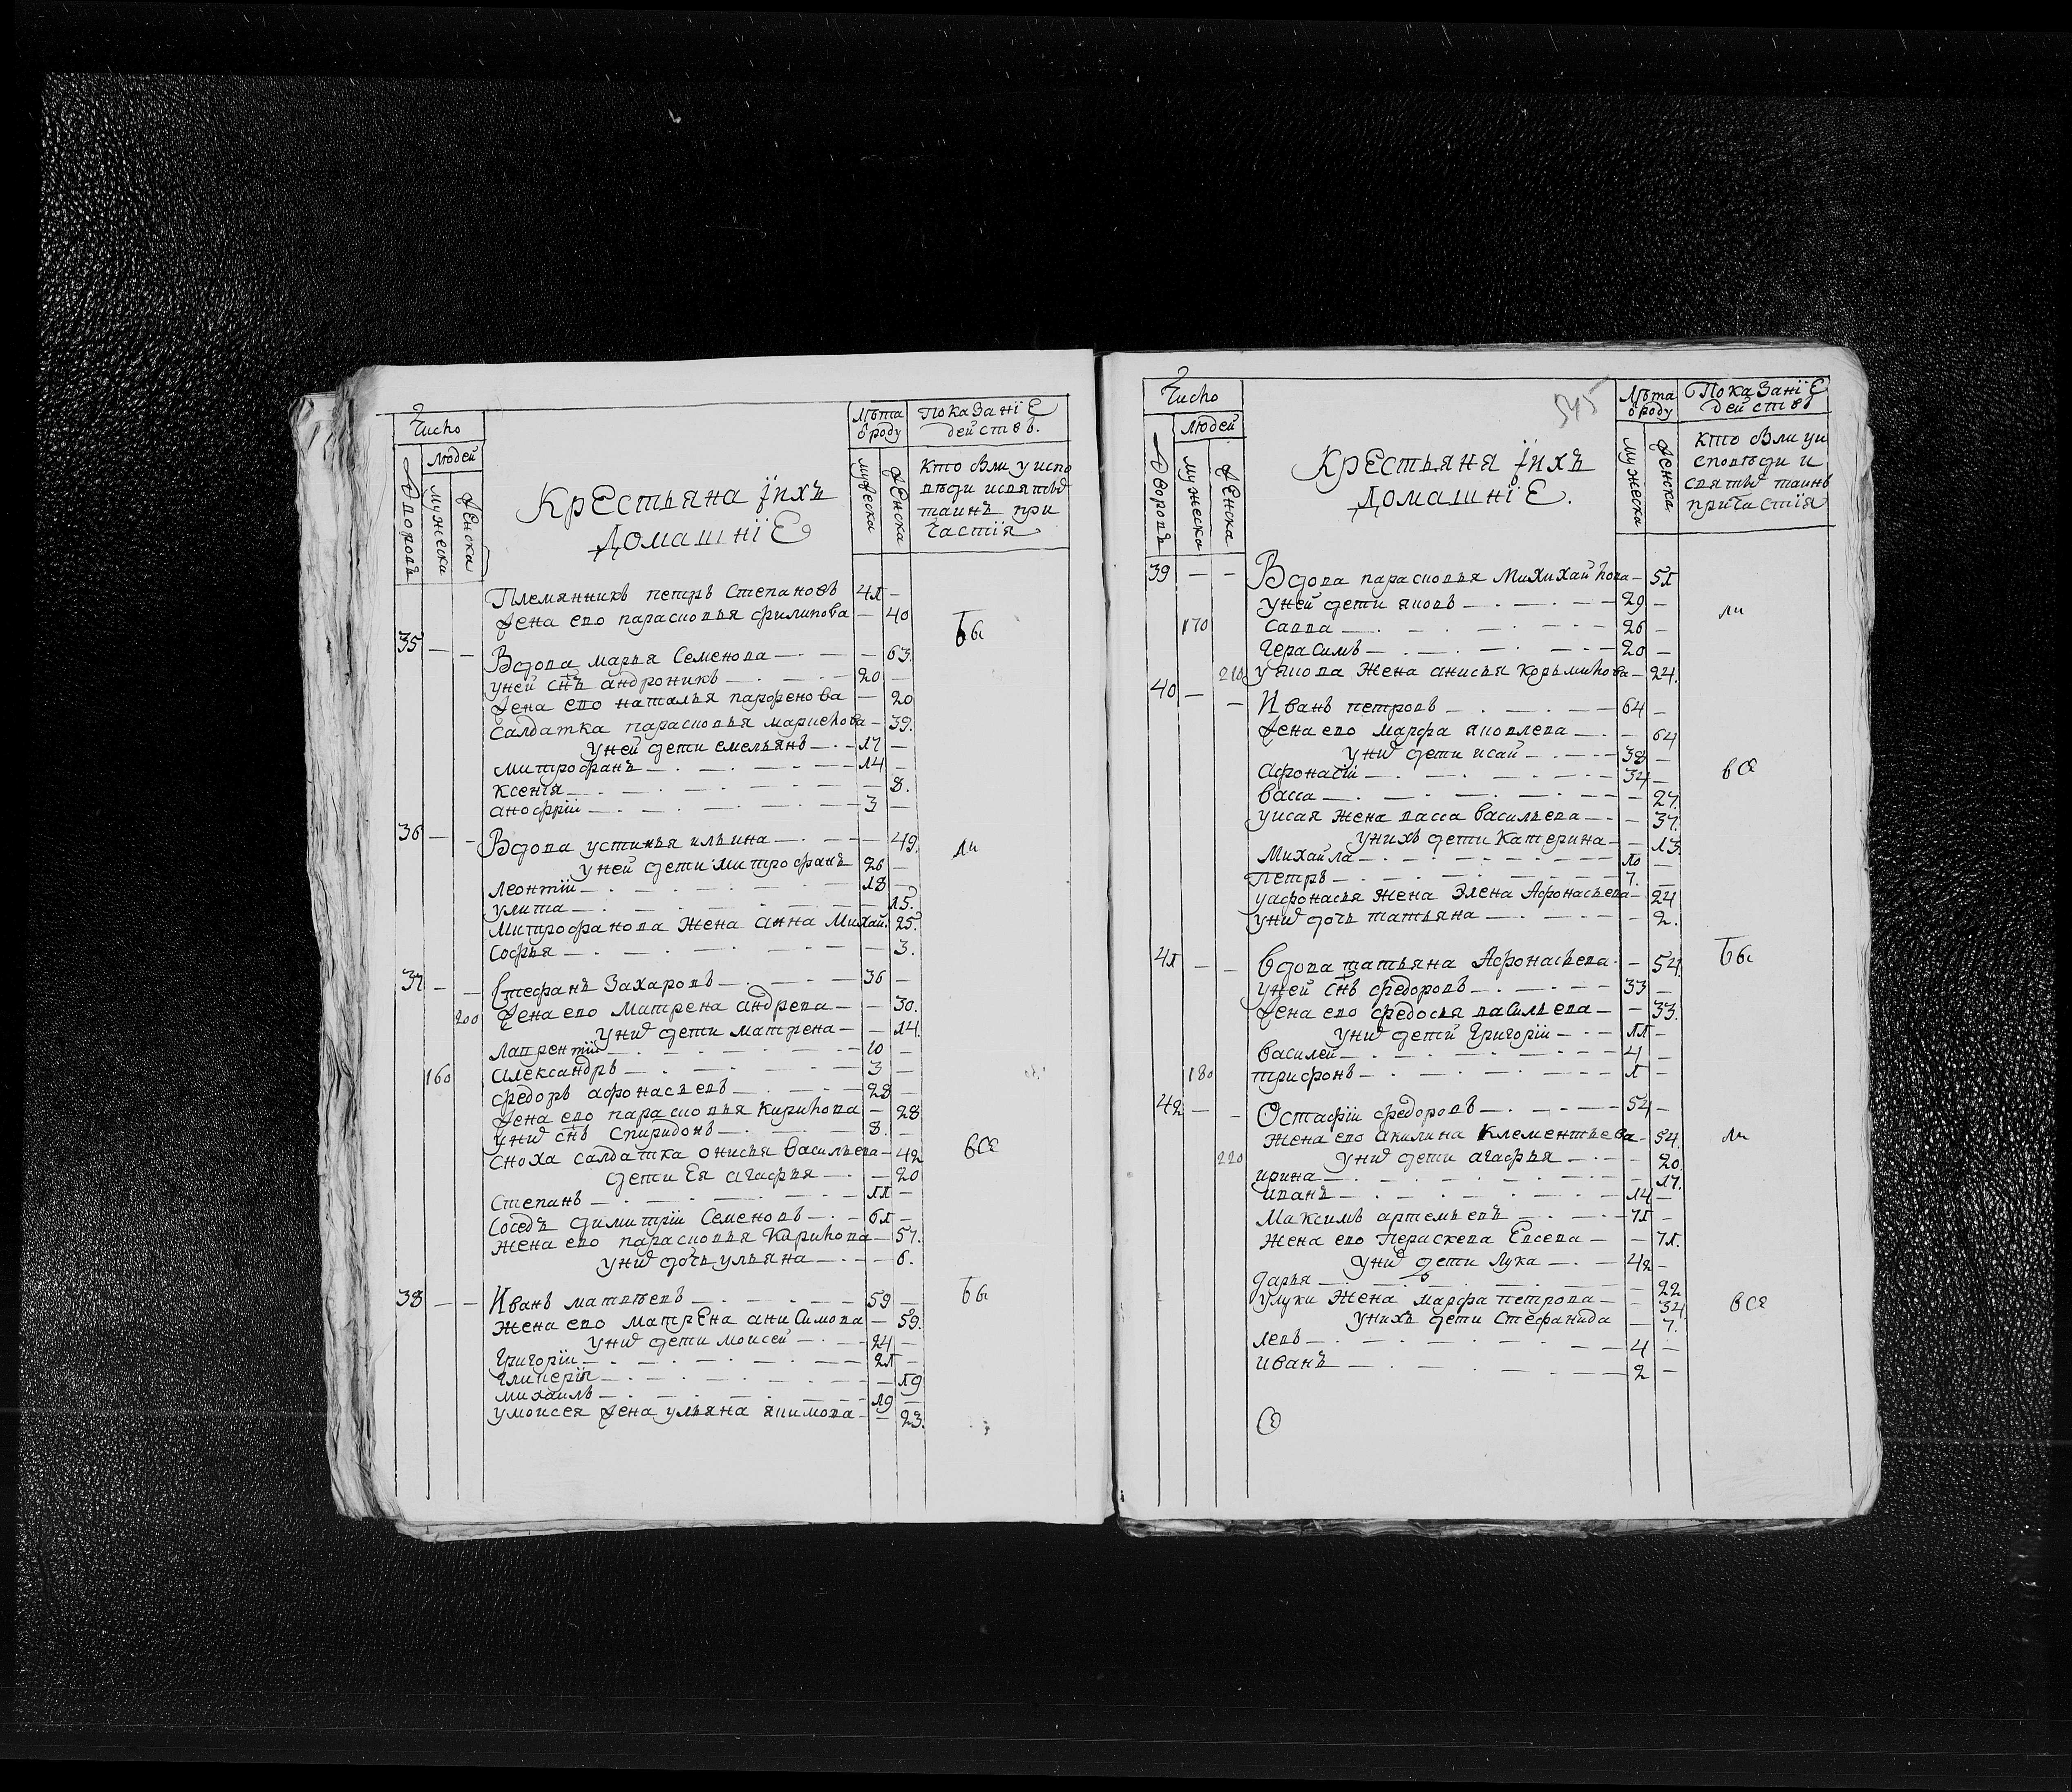 Число
Людей
Дворовъ
мужеска
женска
Крестьяна їихъ
домашнїе
Лѣта
ѿроду
мужеска
женска
Показанїе
действ.
кто был у испо
вѣди исвятых
таинъ при
частїя
Племянникъ петръ Степановъ 41 –
жена ево парасковья филипова – 40
Бы
35 – – Вдова марья Семенова – 63.
уней снъ андроникъ 20 –
жена ево наталья парфенова – 20
Салдатка парасковья маркелова – 39.
уней дети емельянъ 17 –
митрофанъ 14 –
Ксенїя – 8.
анофрїи 3 –
36 – – Вдова устинья ильина – 49.
ли
уней дети митрофанъ 26 –
леонтїи 18 –
улита – 15.
митрофанова жена анна Михай. 25.
Софья – 3.
37 – – Стефанъ Захаровъ 36 –
200 жена ево матрена андрева – 30.
уних дети матрена – 14
лаврентїи 10 –
160 александръ 3 –
федоръ афонасьевъ 28 –
жена ево парасковья Кирилова – 28
уних снъ спиридонъ 8. –
сноха салдатка онисья васильева – 42
все
дети Ея агафья – 20
степанъ 11 –
Соседъ димитрїи Семеновъ 61 –
жена ево парасковья Кирилова – 57.
уних дочь ульяна – 6.
38 – – Иванъ матвѣевъ 59 –
Бы
жена ево матрЕна анисимова – 59.
уних дети моисей 24 –
григорїи 21 –
гликерїя – 19
михаилъ 19 –
умоисея жена ульяна якимова – 23.
Число
Людей
Дворовъ
мужеска
женска
545
Крестьяня їихъ
домашнїЕ.
Лѣта
ѿроду
мужеска
женска
ПоказанїЕ
действ
кто был уи
сповѣди и
святых таинъ
причастїя
39 – – Вдова парасковья Михихайлова – 51
уней дети яковъ 29 –
ли
170 савва 26 –
герасимъ 20 –
210 уякова жена анисья Корьмилова – 24.
40 – – Иванъ петровъ 64 –
жена ево марфа яковлева – 64
уних дети исай 38 –
афонасїи 34 –
все
васса – 27.
уисая жена васса васильева – 37.
унихъ дети Катерина – 13.
михайла 10 –
петръ 7. –
уафонасья жена Элена Афонасьева – 24
уних дочь татьяна – 2.
41 – – Вдова татьяна Афонасьева – 54
Бы
уней снъ федоровъ 33 –
жена ево федосья васильева – 33.
уних дети григорїи 11 –
василей 4 –
180 трифонъ 1 –
42 – – Остафїи федоровъ 54 –
жена ево акилина Клементьева – 54.
ли
220 уних дети агафья – 20.
ирина – 17.
иванъ 14 –
максимъ артемьевъ 71 –
жена ево Пераскева Евсева – 71.
уних дети лука 42 –
дарья – 22
улуки жена марфа петрова – 34
все
унихъ дети стефанида – 7.
левъ 4 –
иванъ 2 –